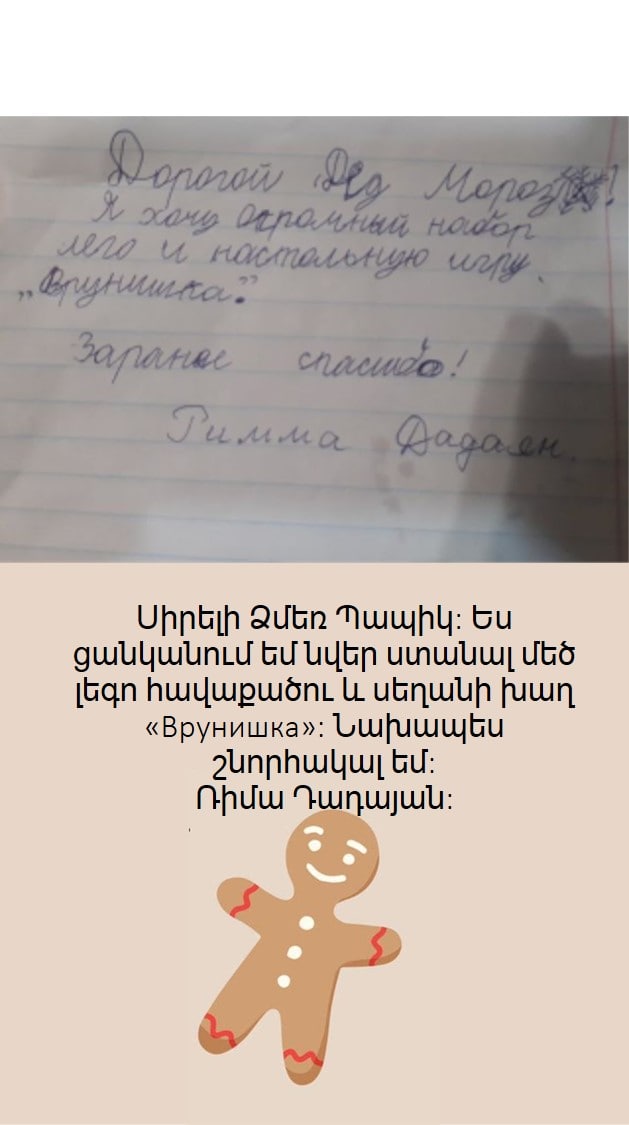 Дорогой Дед Мороз!
Я хочу огромный набор
лего и настольную игру
„Врунишка".
Заранее спасибо!
Римма Дадаян.
Սիրելի Ձմեռ Պապիկ: Ես
ցանկանում եմ նվեր ստանալ մեծ
լեգո հավաքածու և սեղանի խաղ
«Врунишка»: Նախապես
շնորհակալ եմ:
Ռիմա Դադայան: